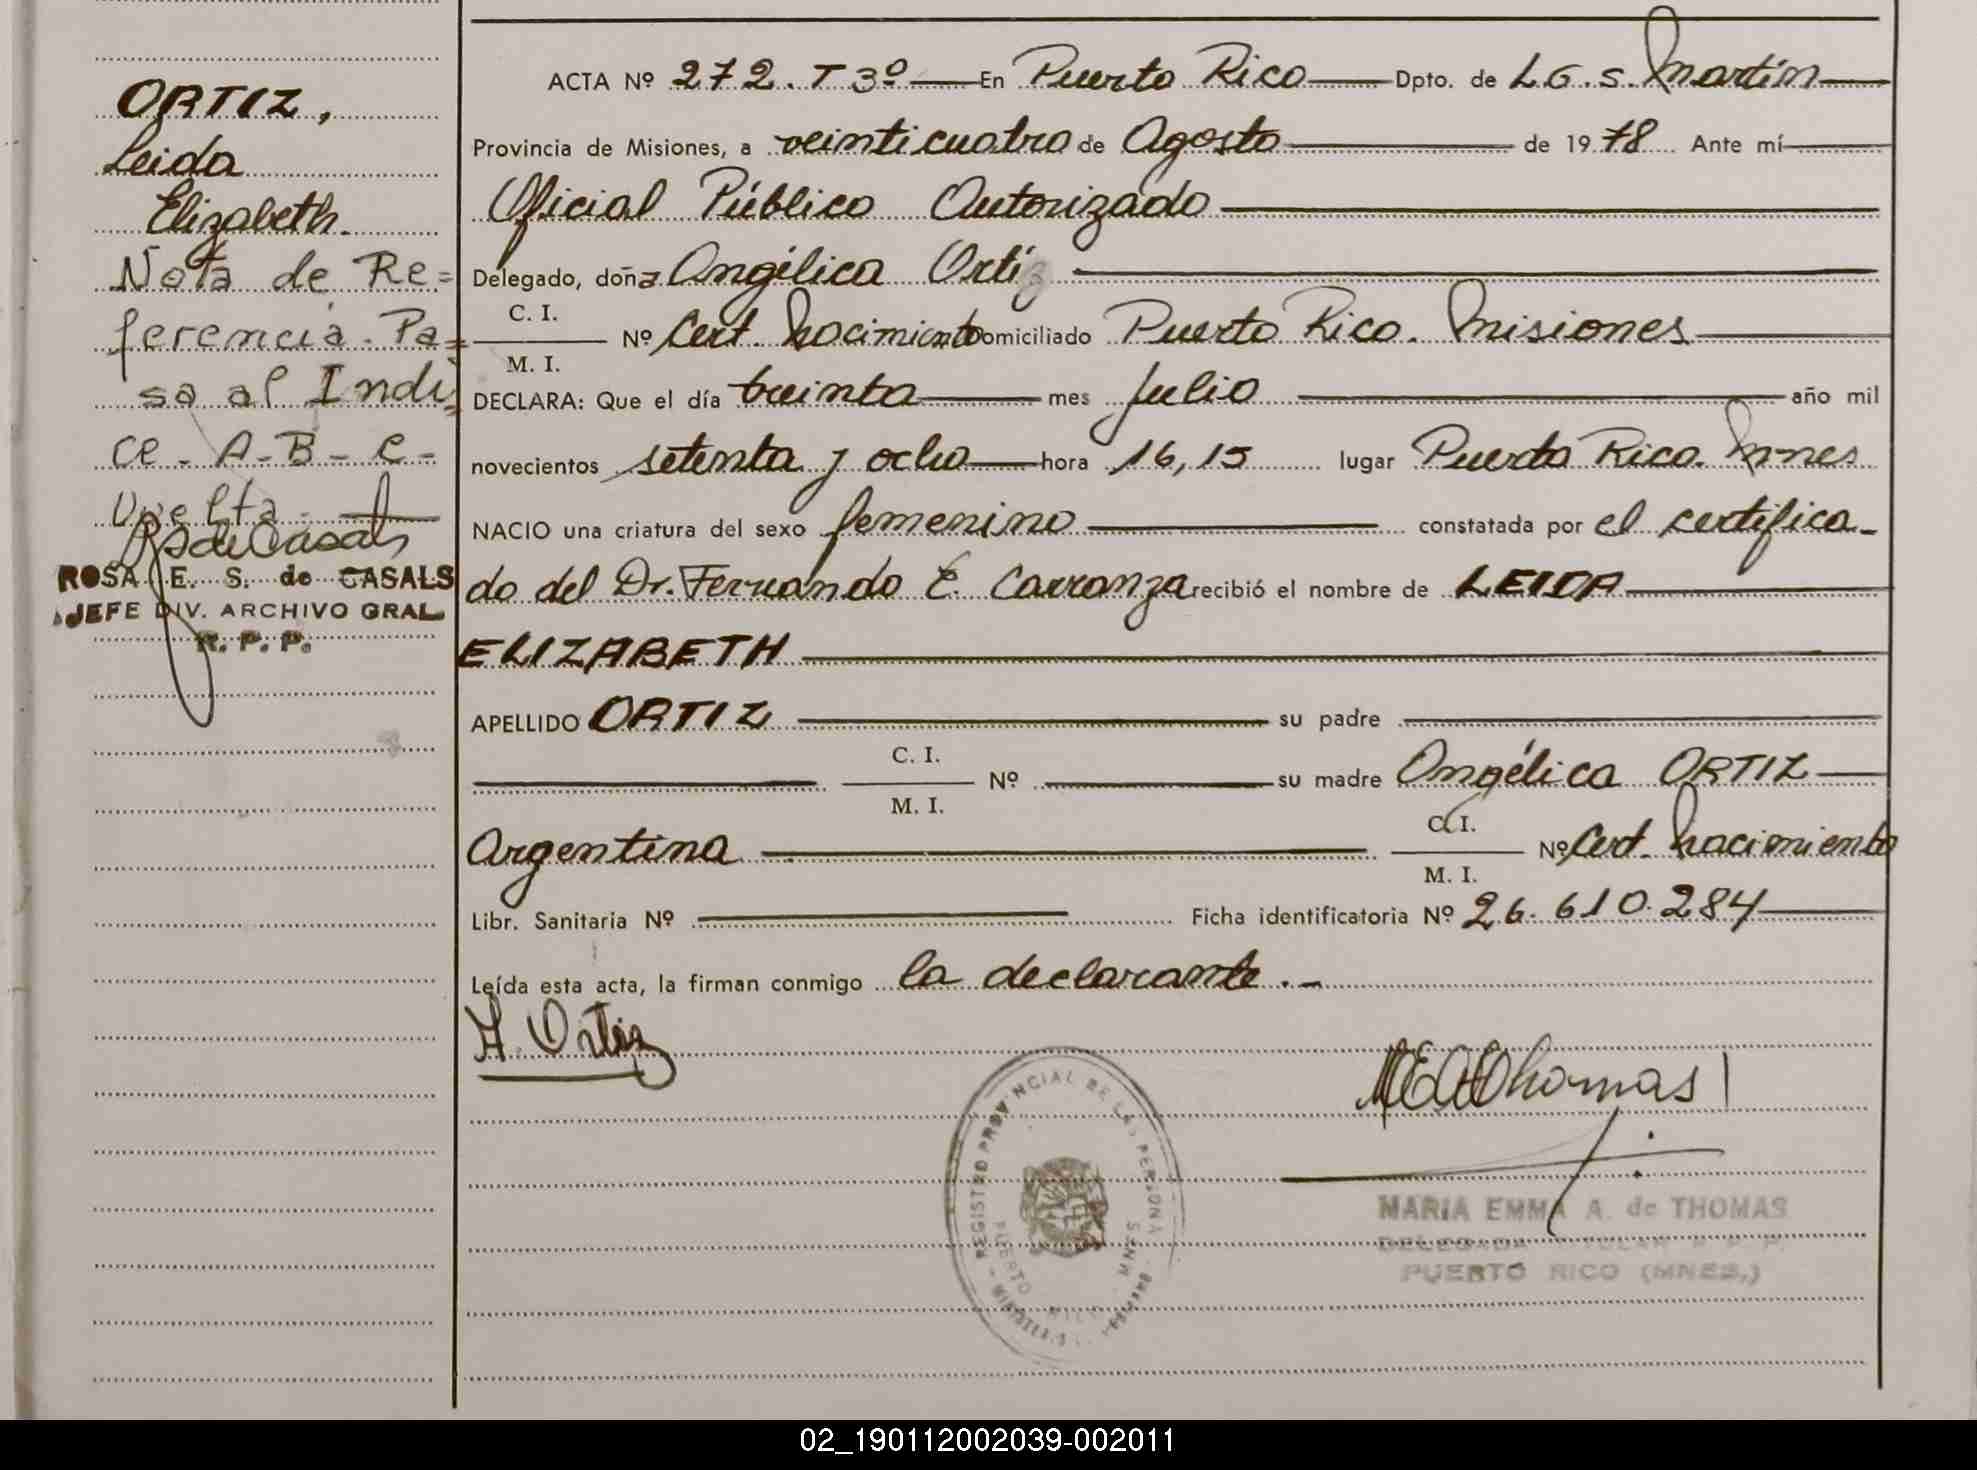 ORTIZ,
Leida
Elizabeth.
Nota de Re=
ferencia. Pa=
sa al Indi=
ce - A - B - C -
Vuelta -
ROSA E. S. de CASALS
JEFE DIV. ARCHIVO GRAL
R. P. P.
ACTA Nº 272. T 3º En Puerto Rico Dpto. de L.G.S. Martín
Provincia de Misiones, a veinticuatro de Agosto de 1978 Ante mí
Oficial Público Autorizado
Delegado, doña Angélica Ortíz
C. I.
Nº Cert. Nacimiento Domiciliado Puerto Rico. Misiones
M. I.
DECLARA: Que el día treinta mes Julio año mil
novecientos setenta y ocho hora 16,15 lugar Puerto Rico. Mnes
NACIO una criatura del sexo femenino constatada por el certifica-
do del Dr. Fernando E. Carranza recibió el nombre de LEIDA
ELIZABETH
APELLIDO ORTIZ su padre
C. I.
Nº su madre Angélica ORTIZ
M. I.
C. I.
Argentina Nº Cert. Nacimiento
M. I.
Libr. Sanitaria Nº Ficha identificatoria Nº 26.610.284
Leída esta acta, la firman conmigo la declarante.-
A. Ortiz
REGISTRO PROVINCIAL DE LAS PERSONAS
PUERTO RICO
MEAdeThomas
MARIA EMMA A. de THOMAS
DELEGADA TITULAR R. P. P.
PUERTO RICO (MNES.)
02_190112002039-002011